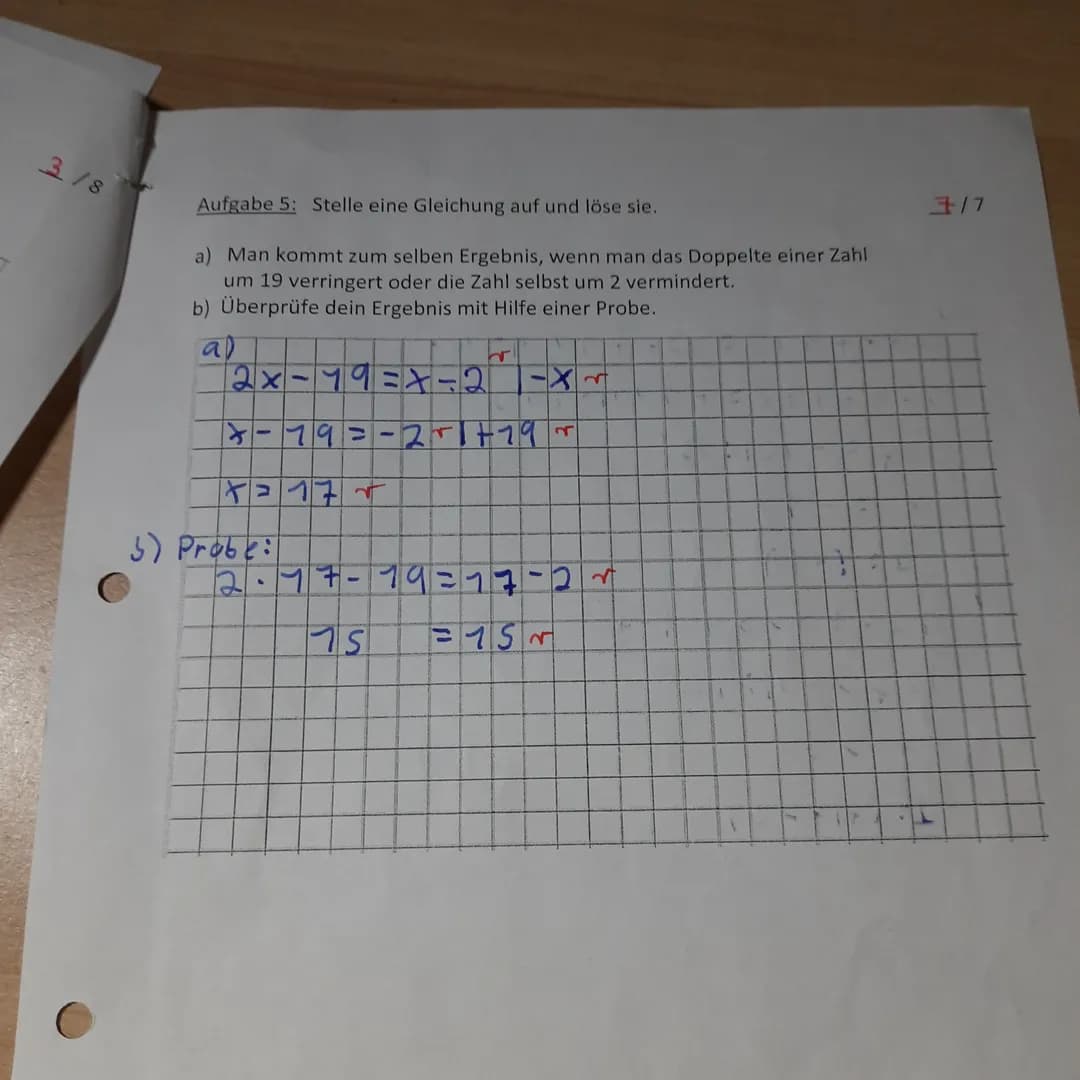 3/8
Aufgabe 5: Stelle eine Gleichung auf und löse sie. 7/7
a) Man kommt zum selben Ergebnis, wenn man das Doppelte einer Zahl
um 19 verringert oder die Zahl selbst um 2 vermindert.
b) Überprüfe dein Ergebnis mit Hilfe einer Probe.
a)
2x-19=x-2 |-x
x-19=-2 |+19
x=17
b) Probe:
2·17-19=17-2
15 =15